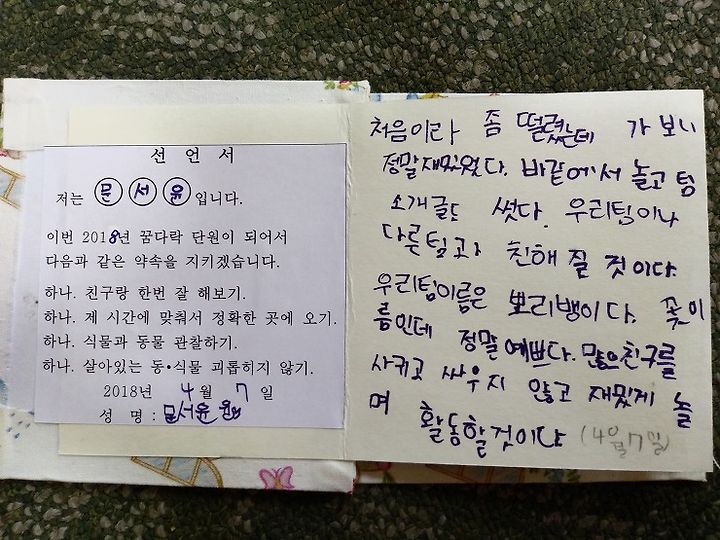 선 언 서
저는 문 서 윤 입니다.
이번 2018년 꿈다락 단원이 되어서
다음과 같은 약속을 지키겠습니다.
하나. 친구랑 한번 잘 해보기.
하나. 제 시간에 맞춰서 정확한 곳에 오기.
하나. 식물과 동물 관찰하기.
하나. 살아있는 동•식물 괴롭히지 않기.
2018년 4 월 7 일
성 명 : 문서윤
처음이라 좀 떨렸는데 가 보니
정말재밌었다. 바깥에서 놀고 팀
소개글도 썻다. 우리팀이나
다른팀과 친해 질 것이다.
우리팀이름은 뽀리뱅이다. 꽃이
름인데 정말예쁘다. 많은친구를
사키고 싸우지 않고 재밌게 놀
며 활동할것이다 (4월7일)